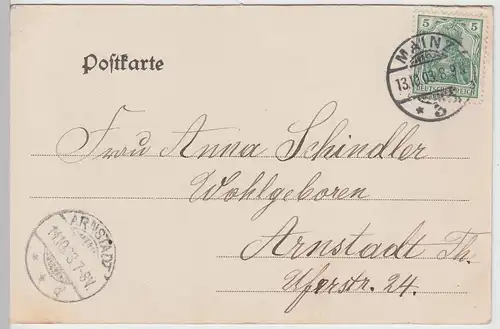 5
DEUTSCHES REICH
MAINZ
13.10.03. 8-9N
* 3
Postkarte
Frau Anna Schindler
Wohlgeboren
Arnstadt Th.
Uferstr. 24.
ARNSTADT
14.10.03. 7-8V.
* * 3